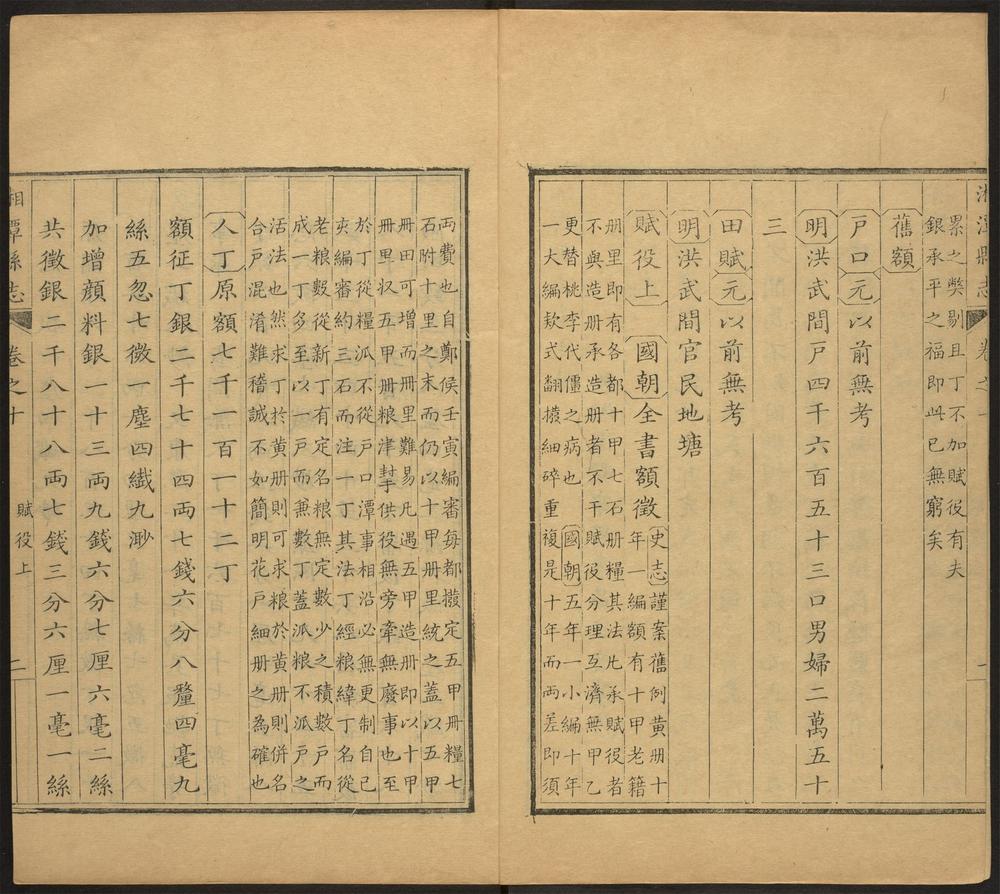 湘潭縣志 卷之十
累之弊剔且丁不加賦役有夫
銀承平之福即此已無窮矣
舊額
戸口元以前無考
明洪武間戸四千六百五十三口男婦二萬五十
三
田賦元以前無考
明洪武間官民地塘
賦役上 國朝全書額徵
史志謹案舊例黃册十
年一編額有十甲老籍
册里即有各都十甲七石册糧其法凡承賦役者
不與造册承造册者不干賦役分理互濟無甲乙
更替桃李代僵之病也國朝五年一小編十年
一大編欵式翻擬細碎重複是十年而両差即須
両費也自鄭侯壬寅編審每都撥定五甲册糧七
石附十里之末而仍以十甲册里統之蓋以五甲
册田可增而册里難易凡遇五甲造册即以十甲
册里収五甲册粮津㨗供役無旁牽無廢事也至
於丁從糧派不從戸口潭事相沿必無更制自已
夾編審約三石而注一丁其法丁經粮緯丁名從
老粮數從新丁有定名粮無定數少之積數戸而
成一丁多至以一戸而兼數丁蓋派粮不派戸之
活法也然求丁於黃册則可求粮於黃册則併名
合戸混淆難稽誠不如簡明花戸細册之為確也
人丁原額七千一百一十二丁
額征丁銀二千七十四両七錢六分八釐四毫九
絲五忽七微一塵四纎九渺
加增顔料銀一十三両九錢六分七厘六毫二絲
共徵銀二千八十八両七錢三分六厘一毫一絲
湘潭縣志 卷之十 賦役上 二